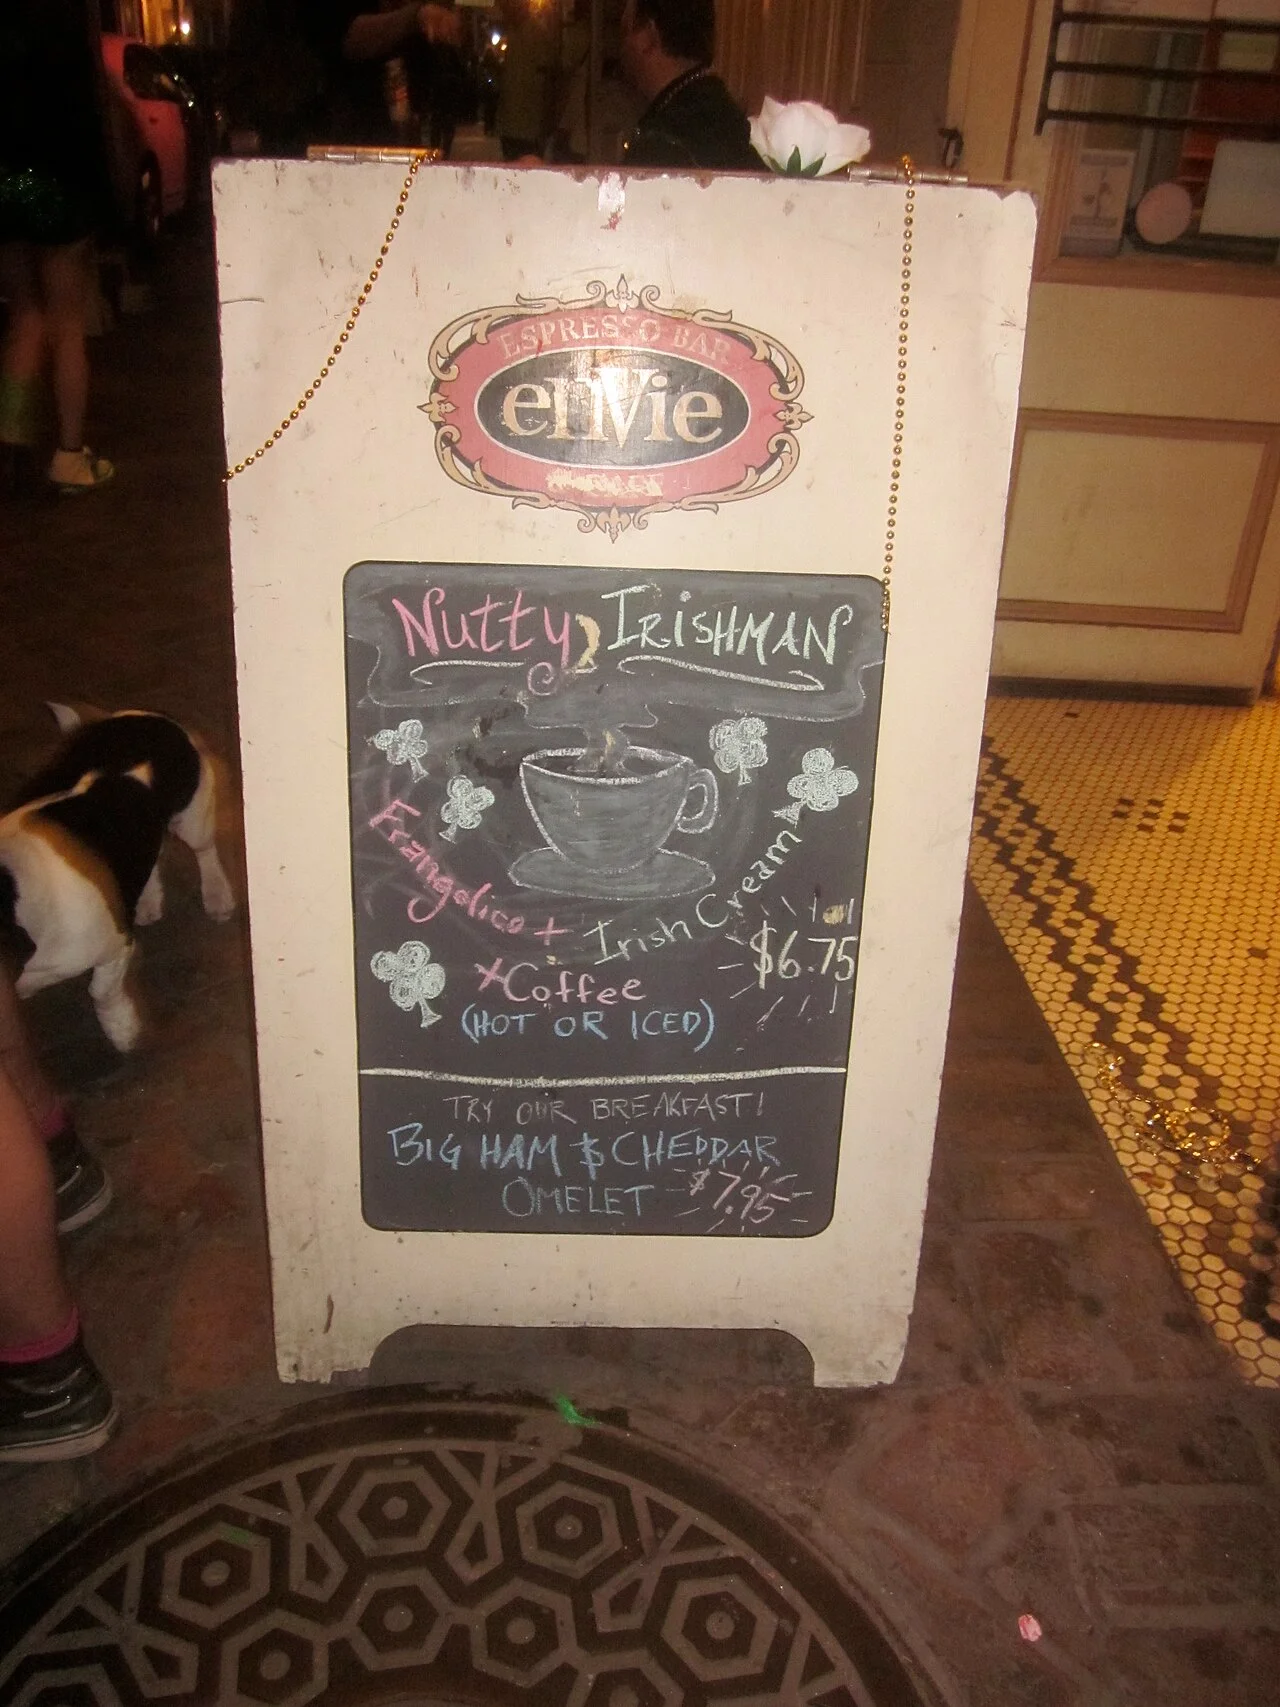 ESPRESSO BAR
enVie
Nutty IRISHMAN
Frangelico + Irish Cream
$6.75
+Coffee
(HOT OR ICED)
TRY OUR BREAKFAST!
BIG HAM & CHEDDAR
OMELET $7.95